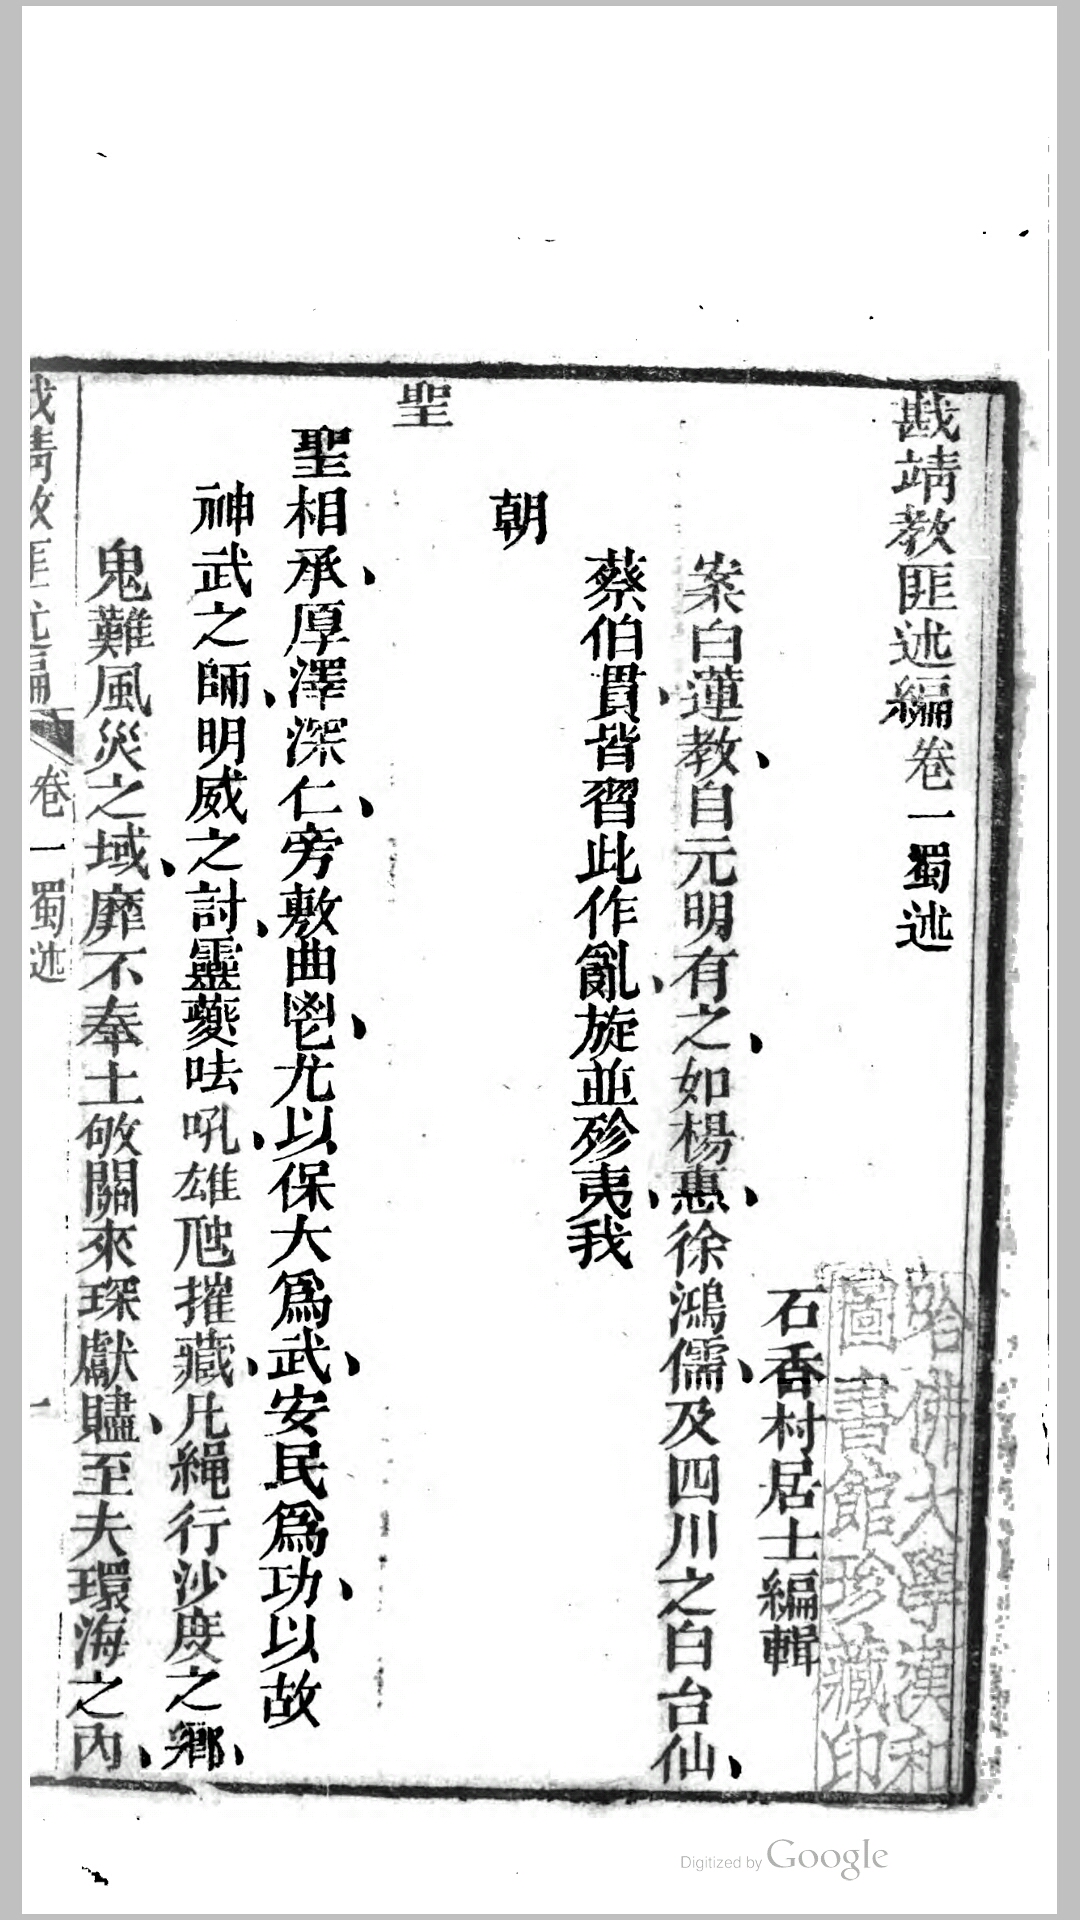 戡靖教匪述編卷一蜀述
哈佛大學漢和
圖書館珍藏印
石香村居士編輯
案白蓮教、自元明有之、如楊惠、徐鴻儒、及四川之白台仙、
蔡伯貫、皆習此作亂、旋並殄夷、我
朝
聖
聖相承、厚澤深仁、旁敷曲鬯、尤以保大爲武、安民爲功、以故
神武之師、明威之討、靈夔呿吼、雄虺摧藏、凡繩行沙度之鄉、
鬼難風災之域、靡不奉土敂關、來琛獻贐、至夫環海之內、
戡靖教匪述編 卷一蜀述 一
Digitized by Google